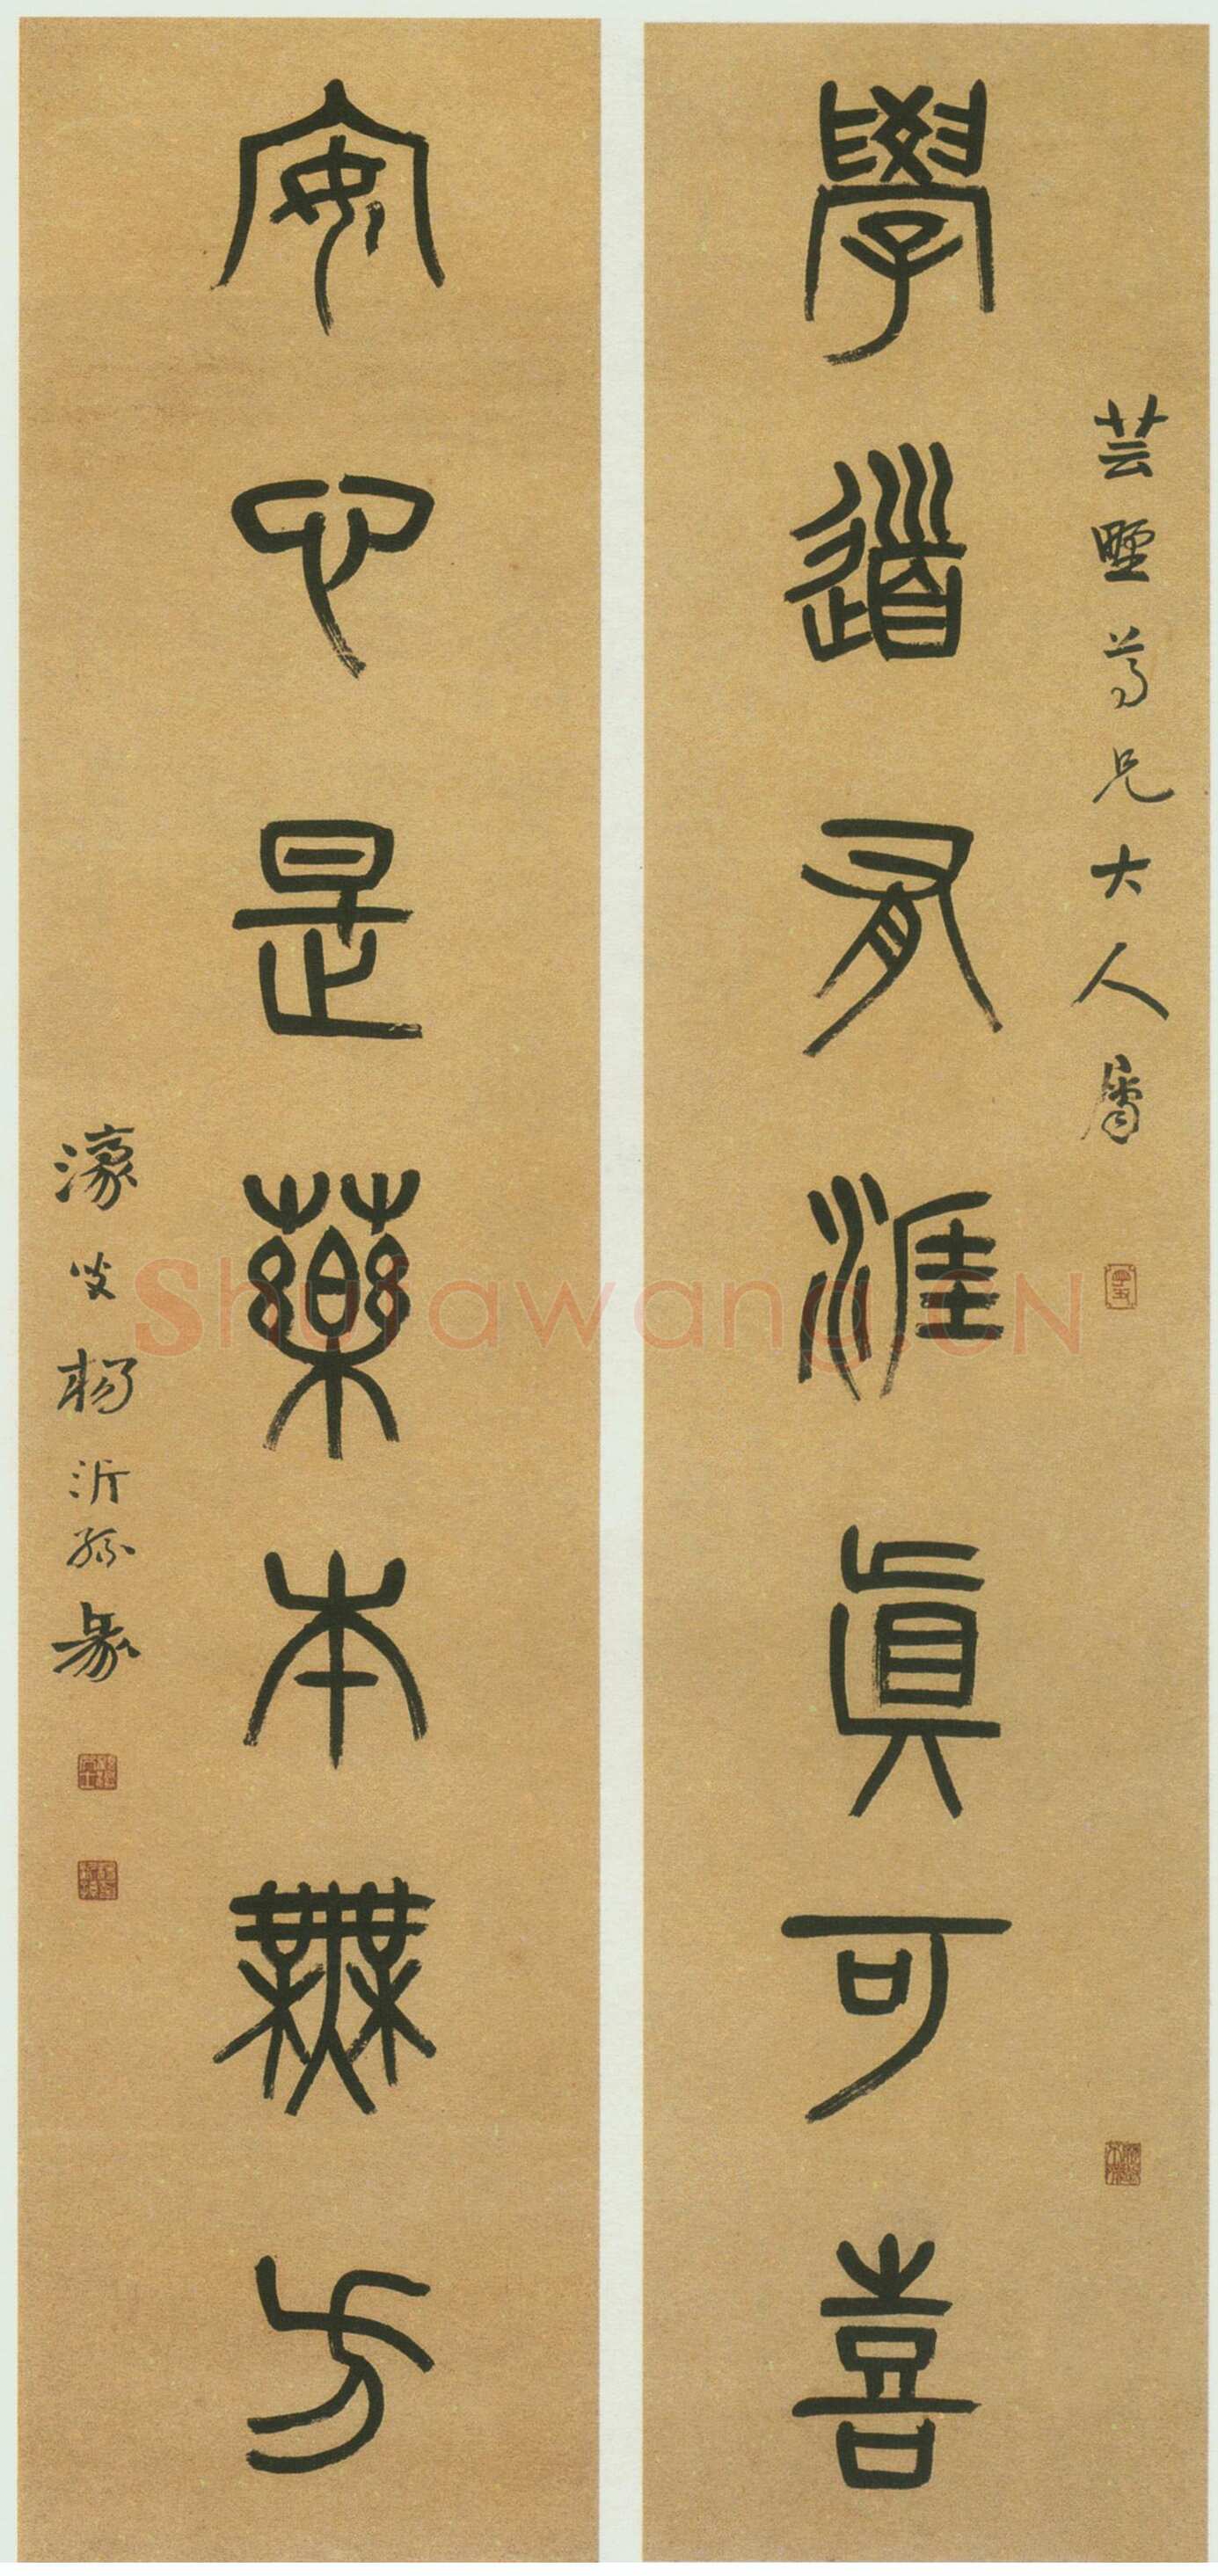 芸 尊兄大人屬
學道有涯眞可喜
安心是藥本無方
濠叟楊沂孫篆
Shufawang.CN